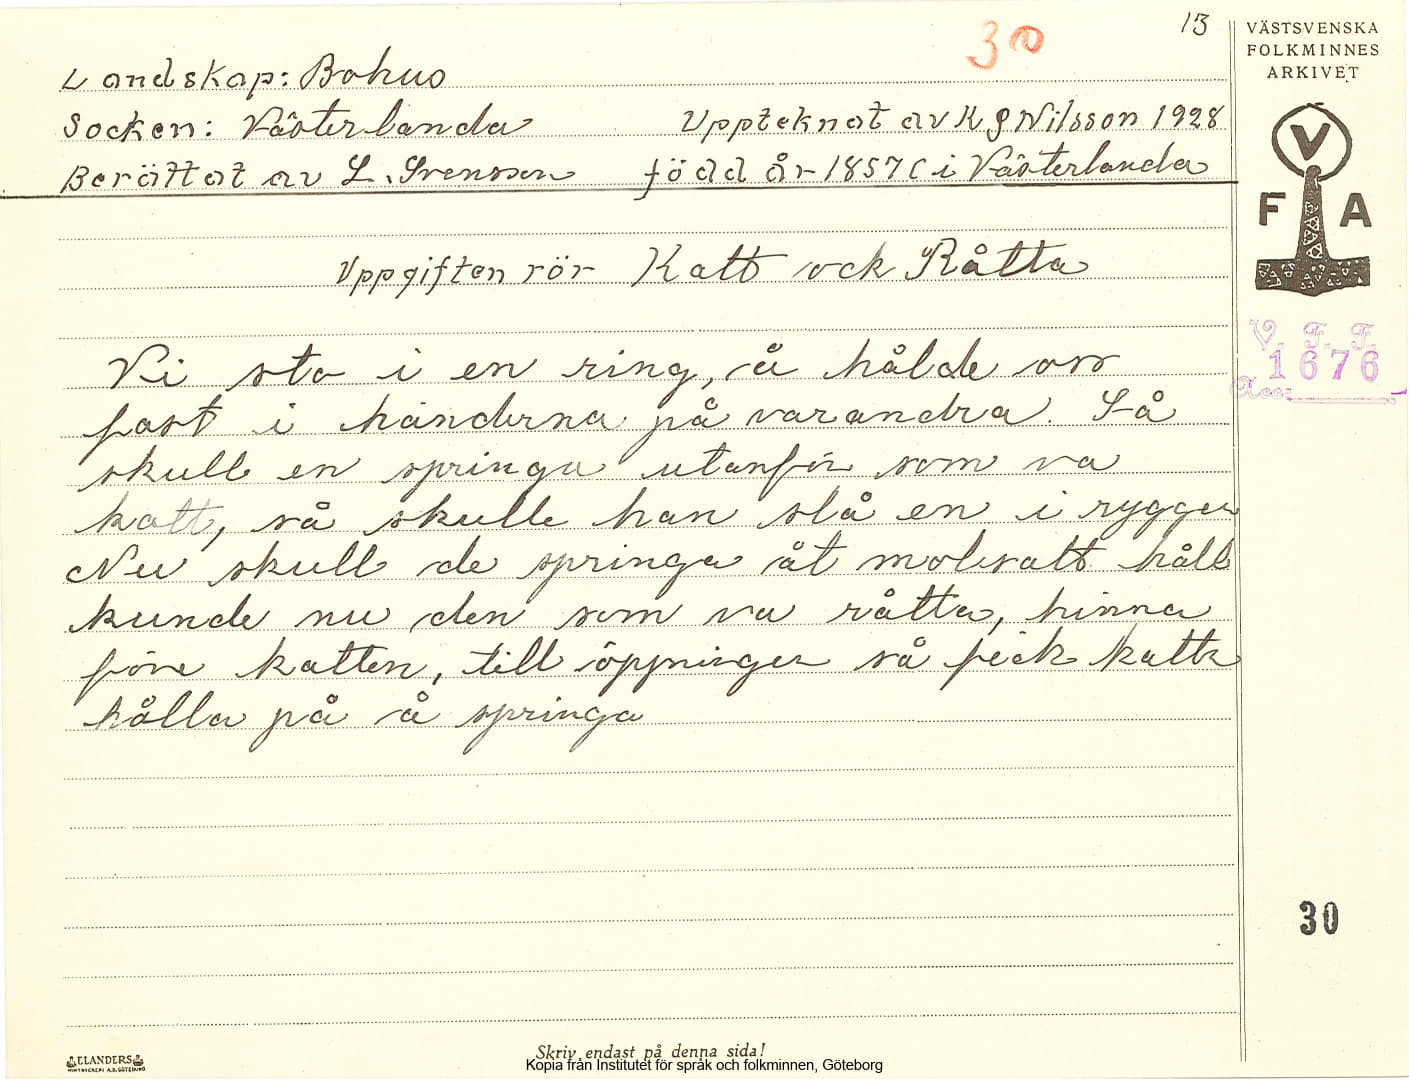 13
30
VÄSTSVENSKA
FOLKMINNES
ARKIVET
V
F A
V. F. F.
1676
Acc:
Landskap: Bohus
Socken: Västerlanda Upptecknat av K G Nilsson 1928
Berättat av L. Svensson född år 1857 i Västerlanda
Uppgiften rör Katt ock Råtta
Vi sto i en ring, å hålde oss
fast i händerna på varandra. Så
skull en springa utanför som va
katt, så skulle han slå en i ryggen
Nu skull de springa åt motsatt håll
kunde nu den som va råtta, hinna
före katten, till öppningen så fick katten
hålla på å springa
30
ELANDERS
Skriv endast på denna sida!
Kopia från Institutet för språk och folkminnen, Göteborg